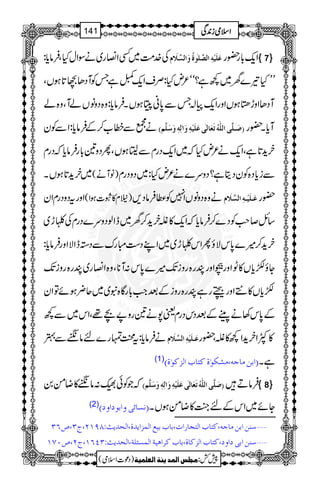 اسلامی زندگی 141
{7} ایک بار حضور عَلَیْہِ الصَّلٰوۃُ وَالسَّلام کی خدمت میں کسی انصاری نے سوال کیا، فرمایا:
’’کیا تیرے گھر میں کچھ ہے؟‘‘ عرض کیا: صرف ایک کمبل ہے جس کو آدھا بچھاتا ہوں،
آدھا اوڑھتا ہوں اور ایک پیالہ ہے جس سے پانی پیتا ہوں۔ فرمایا: وہ دونوں لے آؤ، وہ لے
آیا۔ حضور (صَلَّی اللّٰہُ تَعَالٰی عَلَیْہِ وَاٰلِہٖ وَسَلَّم) نے مجمع سے خطاب کرکے فرمایا: اسے کون
خریدتا ہے، ایک نے عرض کی کہ میں ایک درم سے لیتا ہوں، پھر دو تین بار فرمایا کہ درم
سے زیادہ کون دیتا ہے؟ دوسرے نے عرض کیا: میں دو درم (نو آنے) میں خریدتا ہوں۔
حضور عَلَیْہِ السَّلام نے وہ دونوں انہیں کو عطا فرمادیں (نیلام کا ثبوت ہوا) اور یہ دو درم ان
سائل صاحب کو دے کر فرمایا کہ ایک کا غلہ خرید کر گھر میں ڈالو دوسرے درم کی کلہاڑی
خرید کر میرے پاس لاؤ پھر اس کلہاڑی میں اپنے دستِ مبارک سے دستہ ڈالا اور فرمایا:
جاؤ لکڑیاں کاٹو اور بیچو اور پندرہ روز تک میرے پاس نہ آنا، وہ انصاری پندرہ روز تک
لکڑیاں کاٹتے اور بیچتے رہے پندرہ روز کے بعد جب بارگاہِ نبوی میں حاضر ہوئے تو ان
کے پاس کھانے پینے کے بعد دس درم یعنی پونے تین روپے بچے تھے، اس میں سے کچھ
کا کپڑا خریدا کچھ کا غلہ۔ حضور عَلَیْہِ السَّلام نے فرمایا: یہ محنت تمہارے لئے مانگنے سے بہتر
ہے۔ (ابن ماجہ،مشکوۃ کتاب الزکوۃ) (1)
{8} فرماتے ہیں (صَلَّی اللّٰہُ تَعَالٰی عَلَیْہِ وَاٰلِہٖ وَسَلَّم) کہ جو کوئی بھیک نہ مانگنے کا ضامن بن
جائے میں اس کے لئے جنت کا ضامن ہوں۔ (نسائی و ابوداود) (2)
……سنن ابن ماجہ،کتاب التجارات،باب بیع المزایدۃ،الحدیث:۲۱۹۸،ج۳،ص۳۶
……سنن ابی داود،کتاب الزکاۃ،باب کراھیۃ المسئلۃ،الحدیث:۱۶۴۳،ج۲،ص۱۷۰
پیش کش: مجلس المدینۃ العلمیۃ (دعوتِ اسلامی)